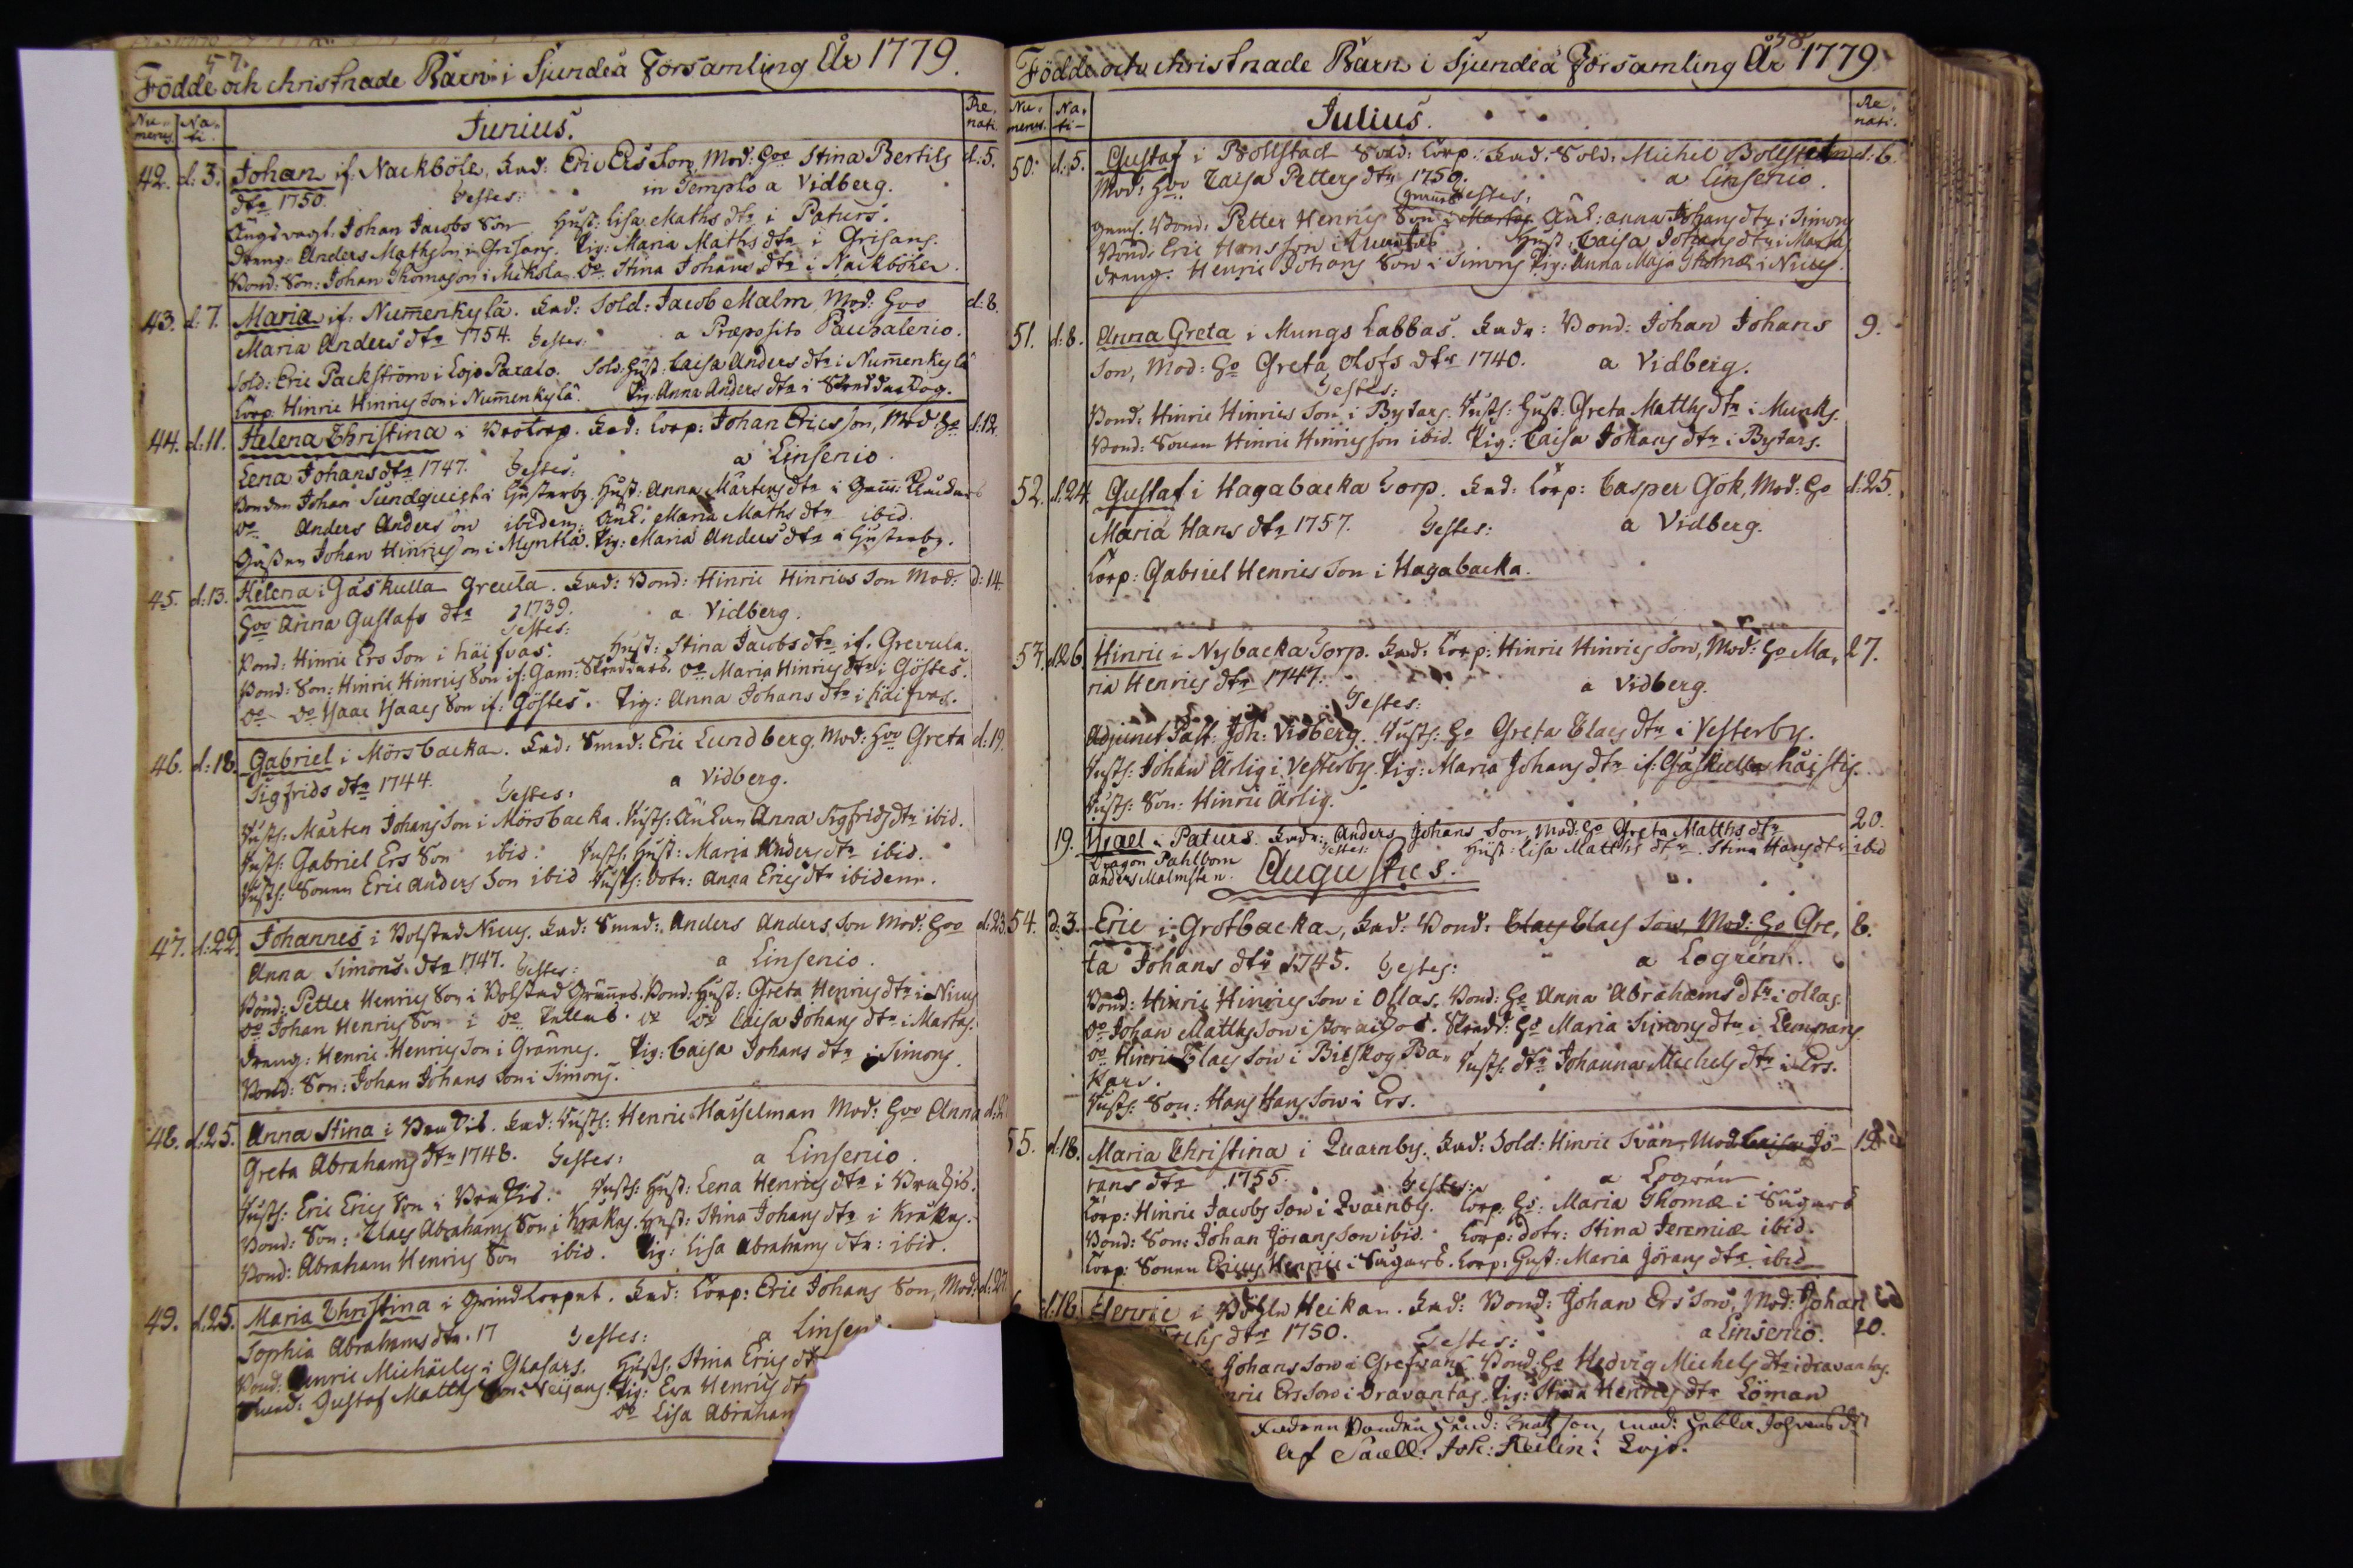 57.
Födde och christnade Barn i Sjundeå Församling År 1779.
Nu-merus Na-ti Junius. Re-nati
42. d: 3. Johan if: Nackböle, Fad: Eric Ers Son, Mod: Hoo Stina Bertils d: 5.
dtr 1750. Testes: in Templo a Vidberg.
Ängsvagt: Johan Jacobs Son Hust: Lisa Maths dtr i Paturs.
Dreng: Anders Mathsson i Grisans. Pig: Maria Maths dtr i Grisans.
Bond: Son: Johan Thomason i Mikola. Do Stina Johans dtr i Nackböle.
43. d: 7. Maria if: Num̅enkylä. Fad: Sold: Jacob Malm, Mod: Hoo d: 8.
Maria Anders dtr 1754. Testes: a Præposito
Sold: Eric Packström i Lojo Paxalo. Sold: Hust: Caisa Anders dtr i Num̅enkylä
Torp: Hinric Hinrics Son i Num̅enkylä. Pig: Anna Anders dtr i
44. d: 11. Helena Christina i Brotorp. Fad: Torp: Johan Ericsson, Mod: Ho d: 12.
Lena Johans dtr 1747. Testes: a Linsenio.
Bonden Johan Sundquist i Gusterby. Hust: Anna Mårtens dtr i
Do Anders Anders son ibidem. Änk: Maria Maths dtr ibid.
Johan Hinricsson i Myntla. Pig: Maria Anders dtr i Gusterby.
45. d: 13. Helena i Gåskulla Greula. Fad: Bond: Hinric Hinrics Son Mod: d: 14.
Hoo Anna Gustafs dtr 1739. a Vidberg.
Testes:
Bond: Hinric Ers Son i häifvas. Hust: Stina Jacobs dtr if. Grevula.
Bond: Son: Hinric Hinrics Son if: Gam: Do Maria Hinrics dtr i Göstes.
Do Do Isaac Isaacs Son if: Göstes. Pig: Anna Johans dtr i häifvas.
46. d: 18. Gabriel i Mörsbacka. Fad: Smed: Eric Lundberg, Mod: Hoo Greta d: 19.
Sigfrids dtr 1744. Testes: a Vidberg.
Susts: Mårten Johans Son i Mörsbacka. Susts: Änkan Anna Sigfrids dtr ibid.
Susts: Gabriel Ers Son ibid. Susts: Hust: Maria Anders dtr ibid.
Susts: Sonen Eric Anders Son ibid Susts: Dotr: Anna Erics dtr ibidem.
47. d: 22. Johannes i Bolstad Nicus. Fad: Smed: Anders Anders Son Mod: Hoo d: 23.
Anna Simons dtr 1747. Testes: a Linsenio.
Bond: Petter Henrics Son i Bolstad Grännes. Bond: Hust: Greta Henrics dtr i Nicus
Do Johan Henrics Son i Do Do Do Caisa Johans dtr i Martas.
Dreng: Henric Henrics Son i Grännes. Pig: Caisa Johans dtr i Simons.
Bond: Son: Johan Johans Son i Simons.
48. d: 25. Anna Stina i Fad: Susts: Henric Hasselman Mod: Hoo Anna
Greta Abrahams dtr 1748. Testes: a Linsenio.
Susts: Eric Erics Son i Susts: Hust: Lena Henrics dtr i
Bond: Son: Claes Abrahams Son i Krakas. Hust: Stina Johans dtr i Krakas.
Bond: Abraham Henrics Son ibid. Pig: Lisa Abrahams dtr: ibid.
49. d: 25. Maria Christina i Grindtorpet. Fad: Torp: Eric Johans Son, Mod: d: 27
Sophia Abrahams dtr. 17 Testes: a Linsen
Bond: Henric Michäels i Hust: Stina Erics dt
Gustaf Matths Son Pig: Eva Henrics dt
Do Lisa Abraham
58.
Födde och christnade Barn i Sjundeå Församling År 1779
Nu-merus. Na-ti- Julius. Re-nati.
50. d: 5. Gustaf i Bollstad Sold: Torp: Fad: Sold: Michel Bollstedt d: 6.
Mod: Hoo Caisa Petters dtr 1750. a Linsenio.
Testes,
Bond: Petter Henrics Son i Martas Änk: Anna Johans dtr i Simons
Bond: Eric Hans Son i Hust: Caisa Johans dtr i Martas
Dreng: Henric Johans Son i Simons Pig: Anna Maja Thomæ i Nicus.
51. d: 8. Anna Greta i Mungs Labbas. Fadr: Bond: Johan Johans 9.
Son, Mod: Ho Greta Olofs dtr 1740. a Vidberg.
Testes:
Bond: Hinric Hinrics Son i Bytars. Susts: Hust: Greta Matths dtr i Munks.
Bond: Sonen Hinric Hinricsson ibid. Pig: Caisa Johans dtr i Bytars.
52. d: 24. Gustaf i Hagabacka Torp. Fad: Torp: Casper Gök, Mod: Ho d: 25.
Maria Hans dtr 1757. Testes: a Vidberg.
Torp: Gabriel Henrics Son i Hagabacka.
53. d: 26. Hinric i Nybacka Torp. Fad: Torp: Hinric Hinrics Son, Mod: Ho Ma- 27.
ria Henrics dtr 1747. a Vidberg.
Testes:
Adjunct Past: Joh: Vidberg. Susts: Ho Greta Claes dtr i Vesterby.
Susts: Johan Ärlig i Vesterby. Pig: Maria Johans dtr if: Gåskulla häistis.
Susts: Son: Hinric Ärlig.
19. Israel i Paturs. Fadr: Anders Johans Son, Mod: Ho Greta Matths dtr 20.
Dragon Pahlbom Testes: Hust: Lisa Matths dtr. Stina Hans dtr ibid
Anders Malmsten. Augustus.
54. d: 3. Eric i Grotbacka, Fad: Bond: Claes Claes Son, Mod: Ho Gre, 8.
ta Johans dtr 1745. Testes: a Logrén.
Bond: Hinric Hinrics Son i Ollas. Bond: Ho Anna Abrahams dtr i Ollas.
Do Johan Matths Son i Ho Maria Simons dtr i
Do Hinric Claes Son i Bilskog Ba- Susts: dtr Johanna Michels dtr i Ers.
kars.
Susts: Son: Hans Hans Son i Ers.
55. d: 18. Maria Christina i Quarnby. Fad: Sold: Hinric Svan, Mod: Caisa Jö- 19
rans dtr 1755. Testes: a Logrén
Torp: Hinric Jacobs Son i Qvarnby. Torp: Ho: Maria Thomæ i Sugars
Bond: Son: Johan Jörans Son ibid. Torp: dotr: Stina Jeremiæ ibid.
Torp: Sonen Ericus Henrici i Sugars. Torp: Hust: Maria Jörans dtr ibid
d: 18. Henric i Heikan. Fad: Bond: Johan Ers Son, Mod: Johan
dtr 1750. Testes: a Linsenio. 20.
Johans Son i Grefvans Bond: Ho Hedvig Michels dtr i dravantas.
nric Ers Son i Dravantas. Pig: Stina Henrics dtr Löman
Fadren Bonden Hind: son, mod: Hebla Johans dtr
af Sacell: Joh: Heelin i Lojo.